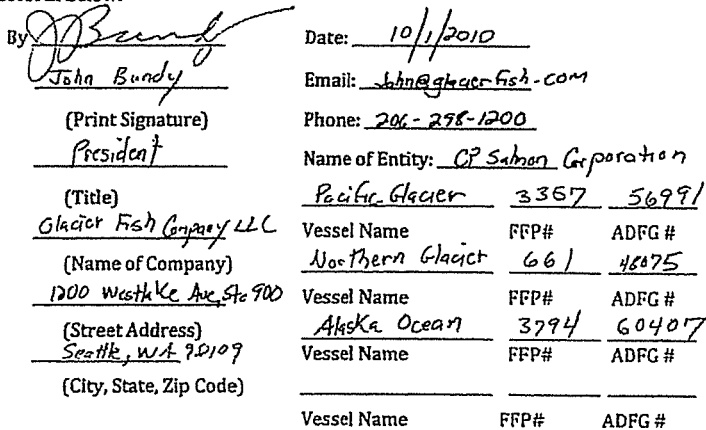 By
John Bundy
(Print Signature)
President
(Title)
Glacier Fish Company LLC
(Name of Company)
1200 Westlake Ave, Ste 900
(Street Address)
Seattle, WA 98109
(City, State, Zip Code)
Date: 10/1/2010
Email: John@glacierfish.com
Phone: 206-298-1200
Name of Entity: CP Salmon Corporation
Pacific Glacier 3357 56991
Vessel Name FFP# ADFG #
Northern Glacier 661 48075
Vessel Name FFP# ADFG #
Alaska Ocean 3794 60407
Vessel Name FFP# ADFG #
Vessel Name FFP# ADFG #